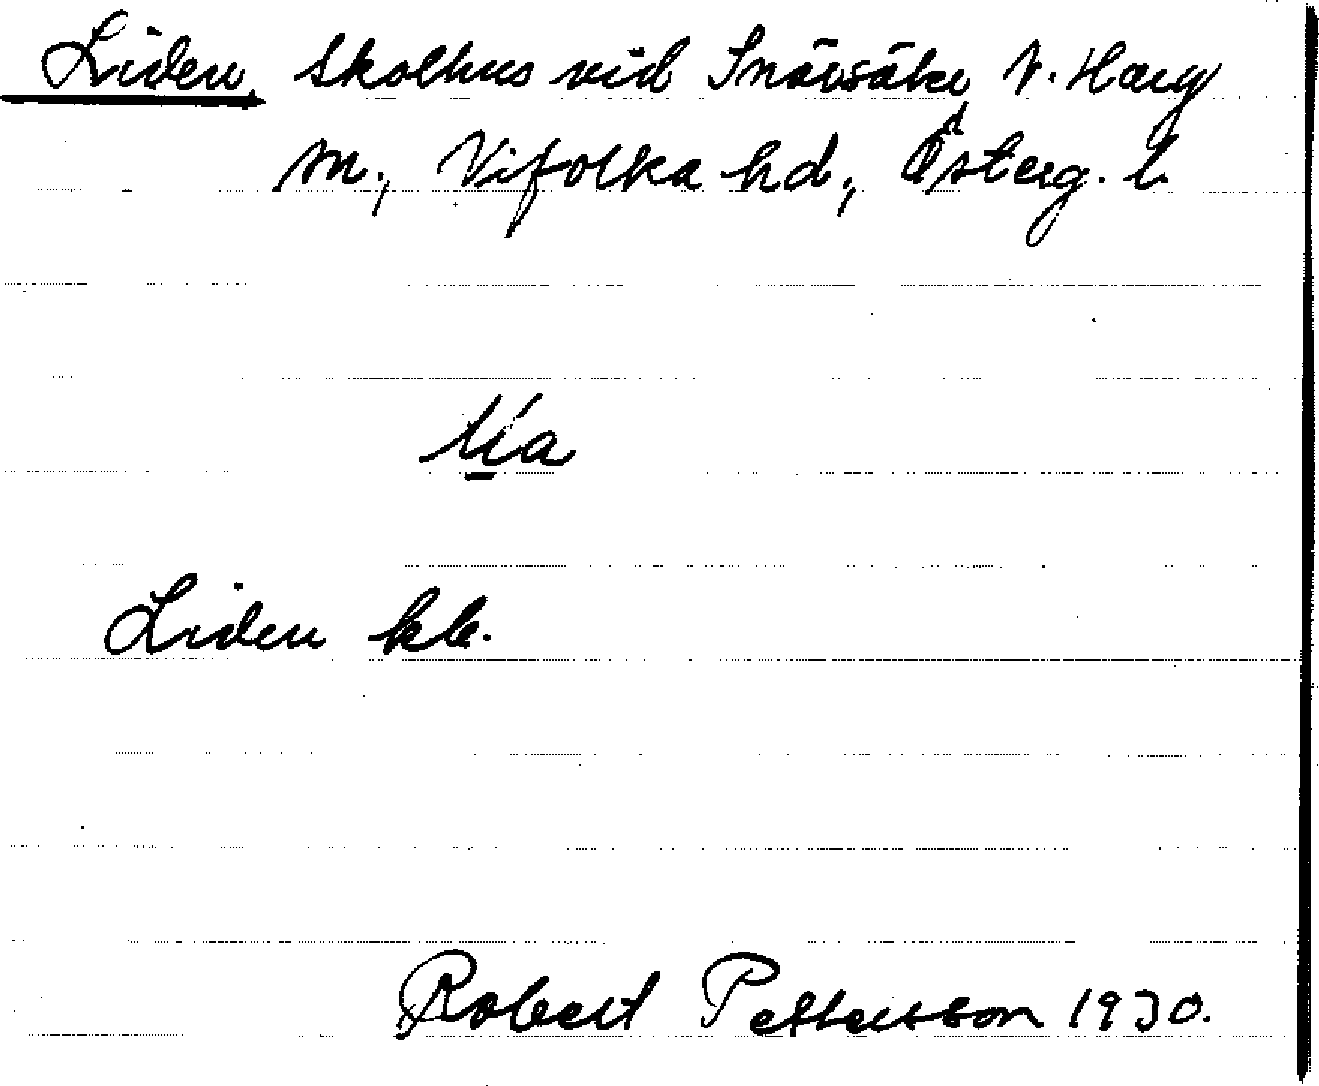 Liden, skolhus vid Snövsåke, V. Harg
sn., Vifolka hd, Österg. l.
lía
Liden kk.
Robert Pettersson 1930.